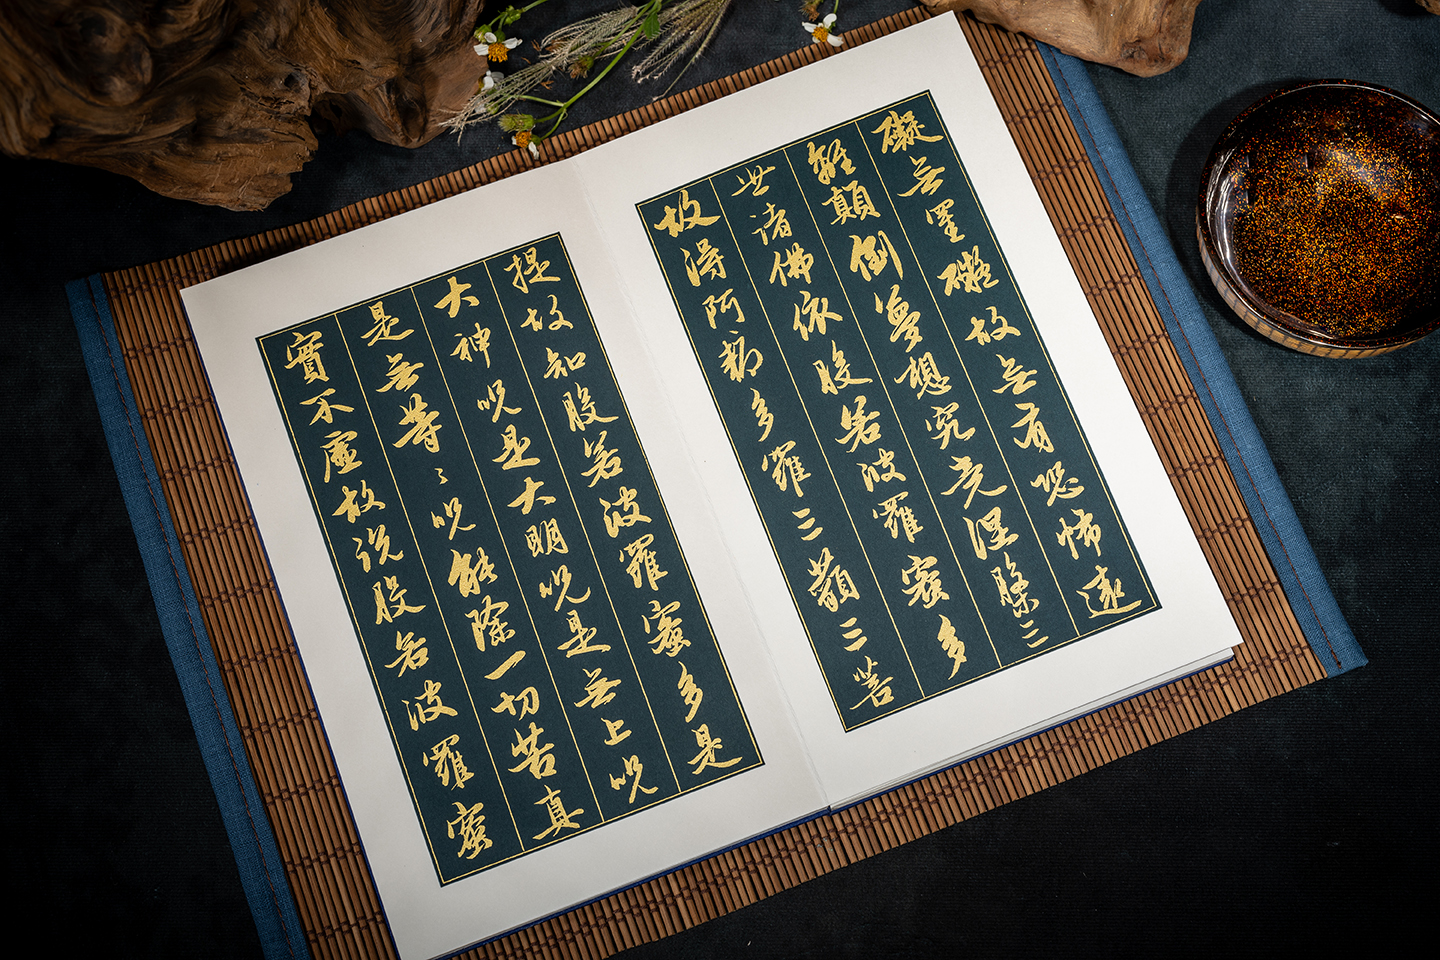 礙無罣礙故無有恐怖遠
離顛倒夢想究竟涅槃三
世諸佛依般若波羅蜜多
故得阿耨多羅三藐三菩
提故知般若波羅蜜多是
大神呪是大明呪是無上呪
是無等々呪能除一切苦真
實不虛故說般若波羅蜜